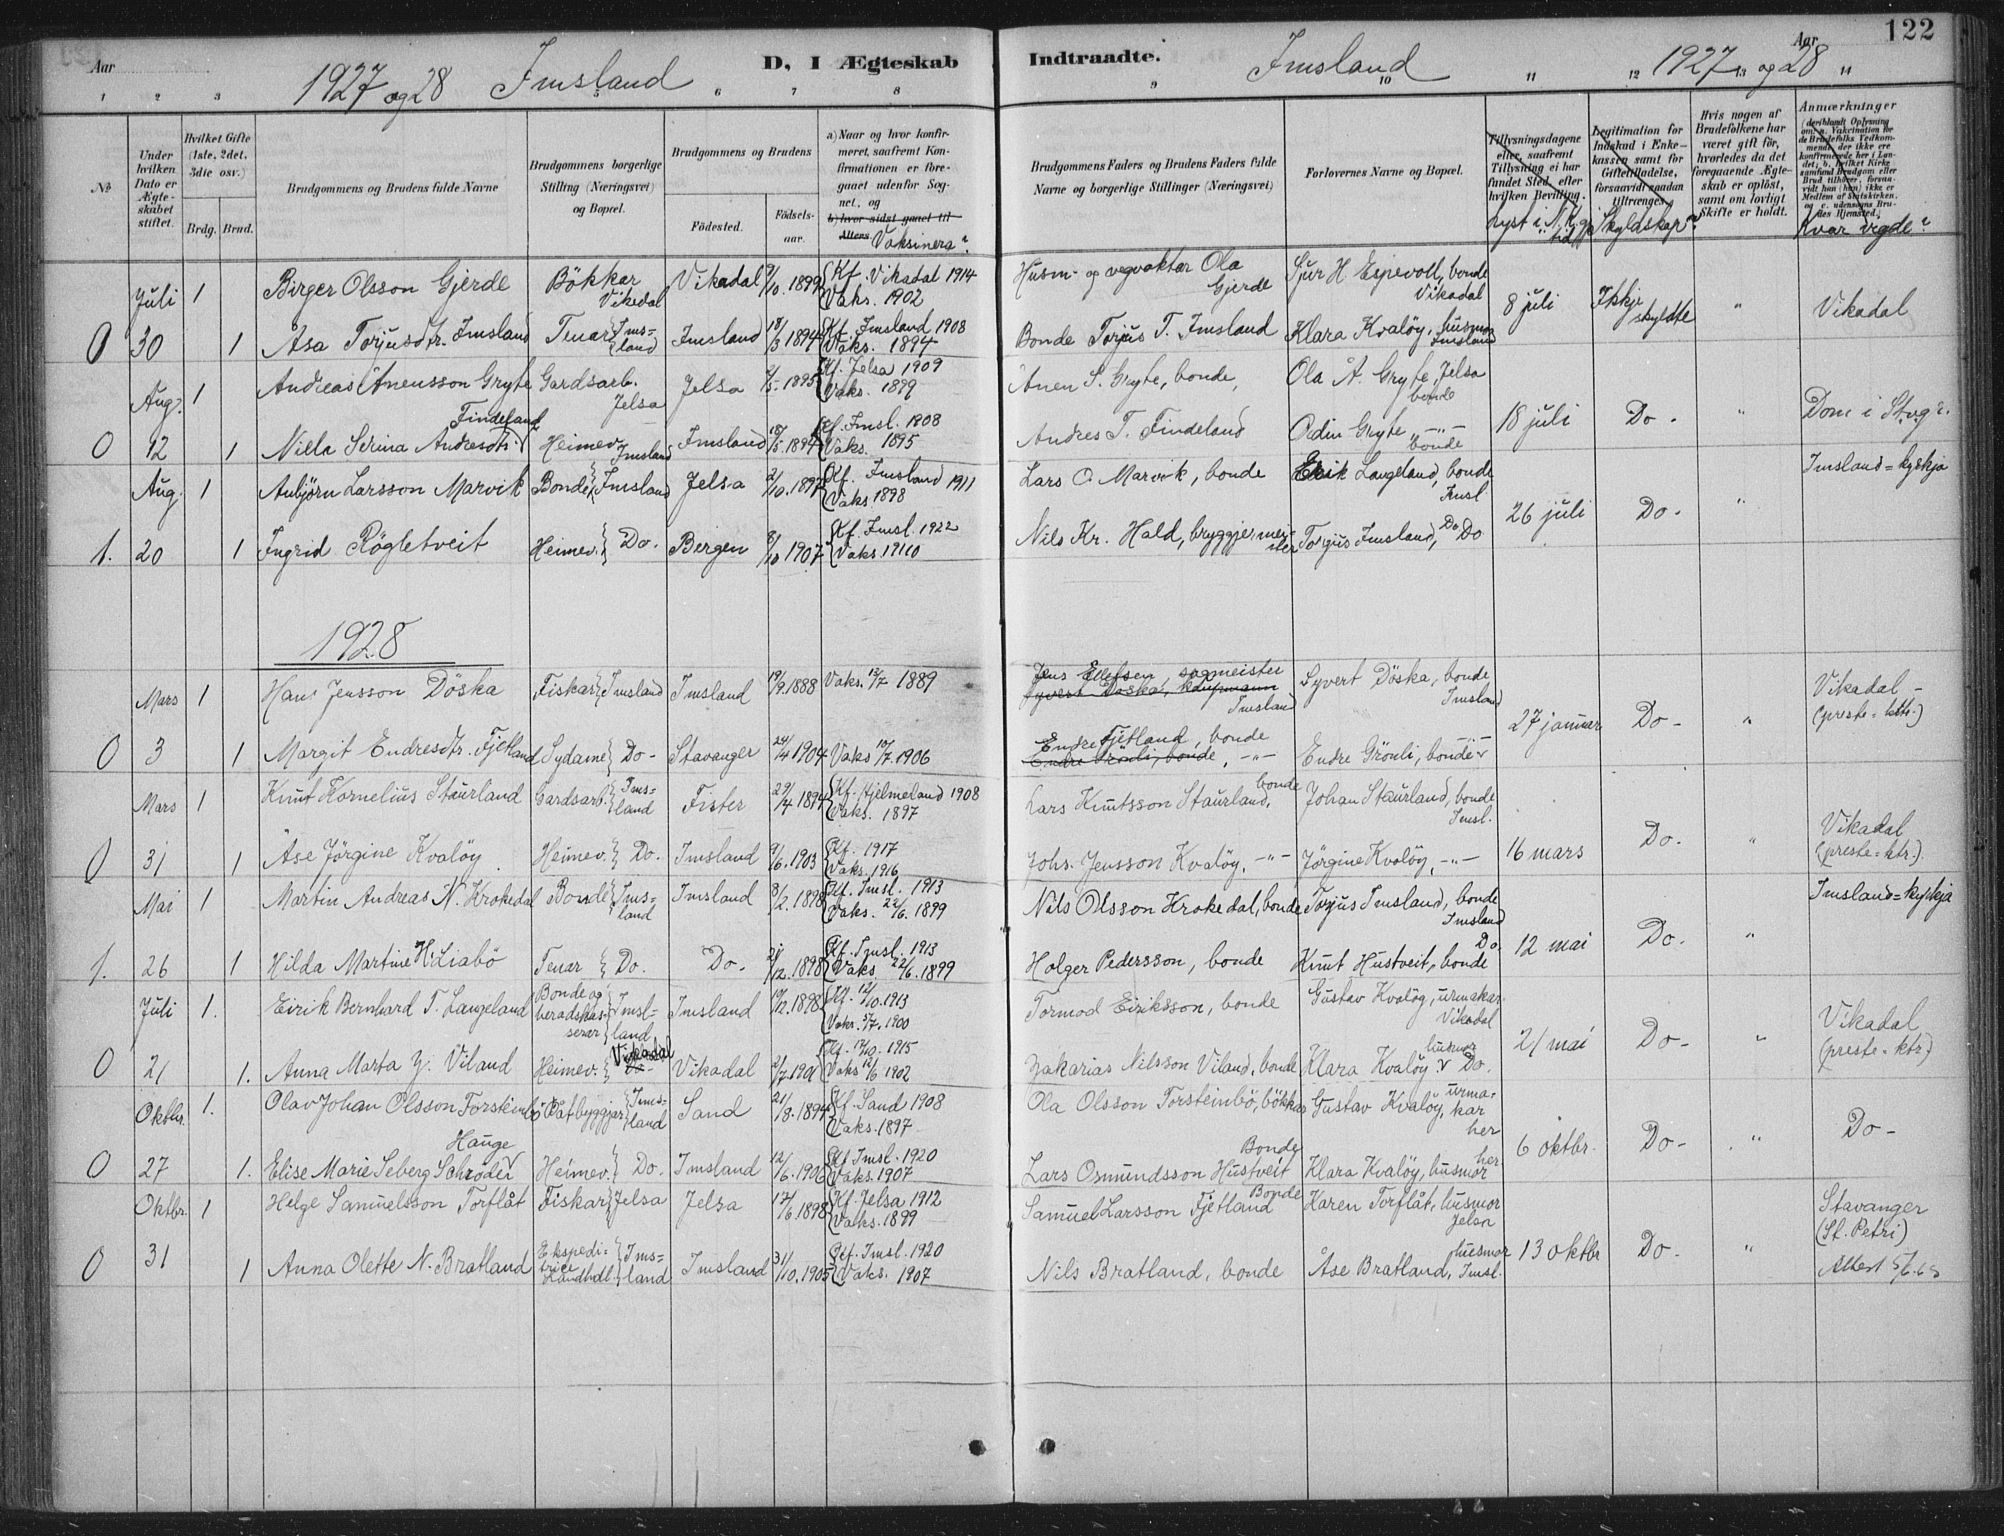 122
Aar
1927 og 28 Imsland
D, I Ægteskab
Indtraadte.
Imsland
Aar
1927 og 28
1 2 3 5 6 7 8 9 10 11 12 13 14
№
Under hvilken Dato er Ægteskabet stiftet.
Hvilket Gifte (1ste, 2det, 3die osv.)
Brdg. Brud.
Brudgommens og Brudens fulde Navne
Brudgommens borgerlige Stilling (Næringsvei) og Bopæl.
Brudgommens og Brudens
Födested.
Födselsaar.
a) Naar og hvor konfirmeret, saafremt Konfirmationen er foregaaet udenfor Sognet, og
b) hvor sidst gaaet til Alters
Vaksinera?
Brudgommens Faders og Brudens Faders fulde Navne og borgerlige Stillinger (Næringsvei)
Forlovernes Navne og Bopæl.
Tillysningsdagene eller, saafremt Tillysning ei har fundet Sted, efter hvilken Bevilling.
Lyst i N. K.gj. tid
Legitimation for Indskud i Enkekassen samt for Giftetilladelse, forsaavidt saadan tiltrænges.
Skyldskap?
Hvis nogen af Brudefolkene har været gift för, hvorledes da det foregaaende Ægteskab er oplöst, samt om lovligt Skifte er holdt.
Anmærkninger
(deriblandt Oplysning om: a. Vakcination for de Brudefolks Vedkommende, der ikke ere konfirmerede her i Landet; b. hvilket Kirkesamfund Brudgom eller Brud tilhörer, forsaavidt han (hun) ikke er Medlem af Statskirken, og c. udensogns Brudes Hjemsted.)
Kvar vigde?
Juli 1 Birger Olsson Gjerde Bökkar Vikedal Vikadal 9/10. 1899 Kf. Vikadal 1914 Vaks. 1902 Husm- og vegvaktar Ola Gjerde Sjur H. Espevoll, bonde Vikadal
0 30 1 Åsa Torjusdtr. Imsland Tenar Imsland Imsland 18/3 1894 Kf. Imsland 1908 Vaks. 1894 Bonde Torjus T. Imsland Klara Kvalöy, husmor Imsland 8 juli Ikkje skyldte " Vikadal
Aug. 1 Andreas Ånensson Gryte Gardsarb. Jelsa Jelsa 2/5. 1895 Kf. Jelsa 1909 Vaks. 1899 Ånen S. Gryte, bonde, Ola Å. Gryte, Jelsa bonde
0 12 1 Nilla Serina Andresdtr. Findeland Heimev. Imsland Imsland 18/5 1894 Kf. Imsl. 1908 Vaks. 1895 Andres T. Findeland Odin Gryte -"- bonde 18 juli Do. " Dom i Stvgr.
Aug. 1 Anbjörn Larsson Marvik Bonde Imsland Jelsa 2/10. 1897 Kf. Imsland 1911 Vaks 1898 Lars O. Marvik, bonde Eirik Langeland, bonde Imsl. Imsland=kyrkja
1. 20 1 Ingrid Rögletveit Heimev. Do. Bergen 8/10 1907 Kf. Imsl. 1922 Vaks 1910 Nils Kr. Hald, bryggjermeister Torjus Imsland, Do Do 26 juli Do. "
1928
Mars 1 Hans Jensson Döska Fiskar Imsland Imsland 19/9. 1888 Vaks. 13/7 1889 Jens Ellefsen sagmeister Syvert Döska, Kaupmann Imsland Syvert Döska, bonde Imsland Vikadal - (preste-ktr.)
0 3 1 Margit Endresdtr. Fjetland Sydame Do- Stavanger 24/4 1904 Vaks 10/7. 1906 Endre Fjetland, bonde Endre Grönli, bonde, -"- Endre Grönli, bonde 27 januar Do- "
Mars 1 Knut Kornelius Staurland Gardsarb. Imsland Fister 29/4. 1894 Kf. Hjelmeland 1908 Vaks. 1897 Lars Knutsson Staurland, bonde Johan Staurland, bonde Imsl.
0 31 1 Åse Jörgine Kvalöy Heimev. Do. Imsland 9/6. 1903 Kf. 1917 Vaks. 1916 Johs. Jensson Kvalöy, -"- Jörgine Kvalöy, -"- 16 mars Do. " Vikadal (preste-ktr.).
Mai 1 Martin Andreas N. Krokedal Bonde Imsland Imsland 8/2. 1898 Kf. Imsl. 1913 Vaks. 22/6. 1899 Nils Olsson Krokedal, bonde Torjus Imsland, bonde Imsland Imsland=kyrkja
1. 26 1 Hilda Martine H. Liabö Tenar Do. Do. 21/12. 1898 Kf. Imsl. 1913 Vaks. 22/6. 1899 Holger Pedersson, bonde Knut Hustveit, bonde Do. 12 mai Do. "
Juli 1. Eirik Bernhard T. Langeland Bonde og heradskasserar Imsland Imsland 19/12. 1898 Kf. 12/10. 1913 Vaks. 5/7. 1900 Tormod Eiriksson, bonde Gustav Kvalöy, urmakar Vikadal
0 21 1. Anna Marta Z. Viland Heimev. Vikadal Do- Vikadal 2/7. 1901 Kf. 17/10. 1915 Vaks 12/6 1902 Zakarias Nilsson Viland, bonde Klara Kvalöy husmor Do. 21 mai Do- " Vikadal (preste-ktr.)
Oktbr. 1. Olav Johan Olsson Torsteinbö Båtbyggjar Imsland Sand 21/8. 1894 Kf. Sand 1908 Vaks. 1897 Ola Olsson Torsteinbö, bökkar Gustav Kvalöy, urmakar her
0 27 1. Elise Marie Seberg Schröder Hauge Heimev. Do. Imsland 12/6. 1906 Kf Imsl. 1920 Vaks. 1907 Lars Osmundsson Hustveit Bonde Klara Kvalöy, husmor her 6 oktbr. Do- " Do-
Oktbr. 1 Helge Samuelsson Torflåt Fiskar Jelsa Jelsa 17/6. 1898 Kf. Jelsa 1912 Vaks. 1899 Samuel Larsson Fjetland Bonde Karen Torflåt, husmor Jelsa
0 31 1 Anna Olette N. Bratland Ekspeditrice Landhdl. Imsland Imsland 31/10. 1905 Kf. Imsl. 1920 Vaks. 1907 Nils Bratland, bonde Åse Bratland, husmor Imsl. 13 oktbr Do. " Stavanger (St. Petri)